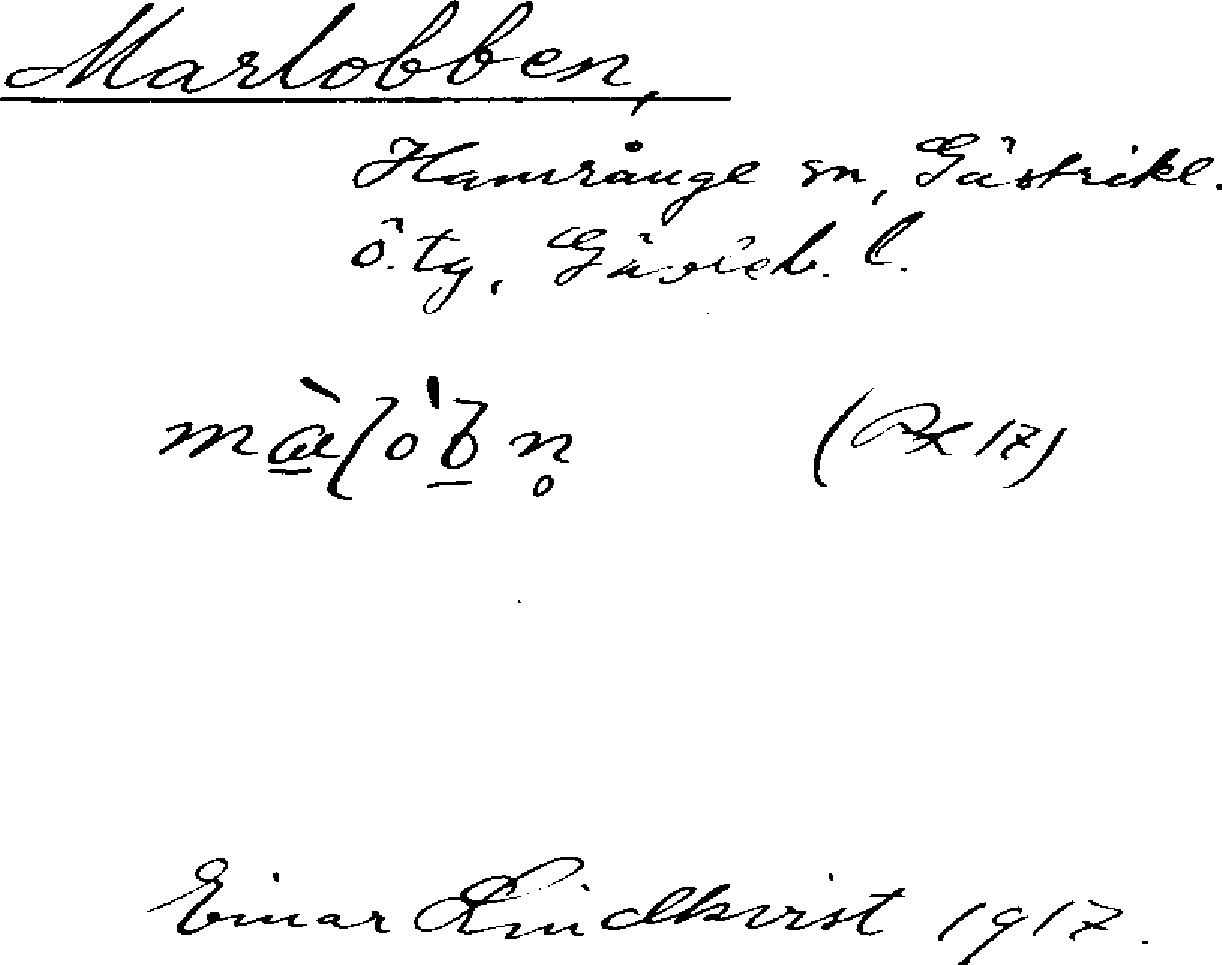 Marlobben,
Hamrånge sn, Gästrikl.
ö. tg, Gävleb. l.
Einar Lindkvist 1917.